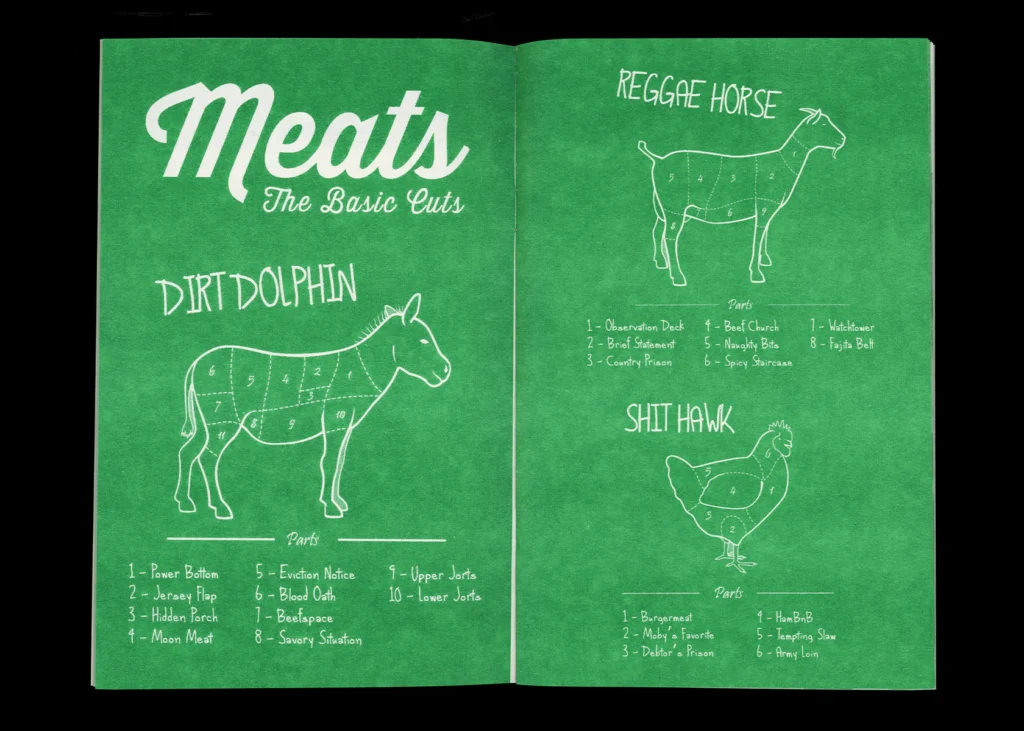 Meats
The Basic Cuts
DIRT DOLPHIN
6
5
4
2
1
3
7
8
9
10
11
Parts
1 - Power Bottom
2 - Jersey Flap
3 - Hidden Porch
4 - Moon Meat
5 - Eviction Notice
6 - Blood Oath
7 - Beefspace
8 - Savory Situation
9 - Upper Jorts
10 - Lower Jorts
REGGAE HORSE
1
5
4
3
2
6
9
8
Parts
1 - Observation Deck
2 - Brief Statement
3 - Country Prison
4 - Beef Church
5 - Naughty Bits
6 - Spicy Staircase
7 - Watchtower
8 - Fajita Belt
SHIT HAWK
6
5
4
1
3
2
Parts
1 - Burgermeat
2 - Moby's Favorite
3 - Debtor's Prison
4 - HamBnB
5 - Tempting Slaw
6 - Army Loin